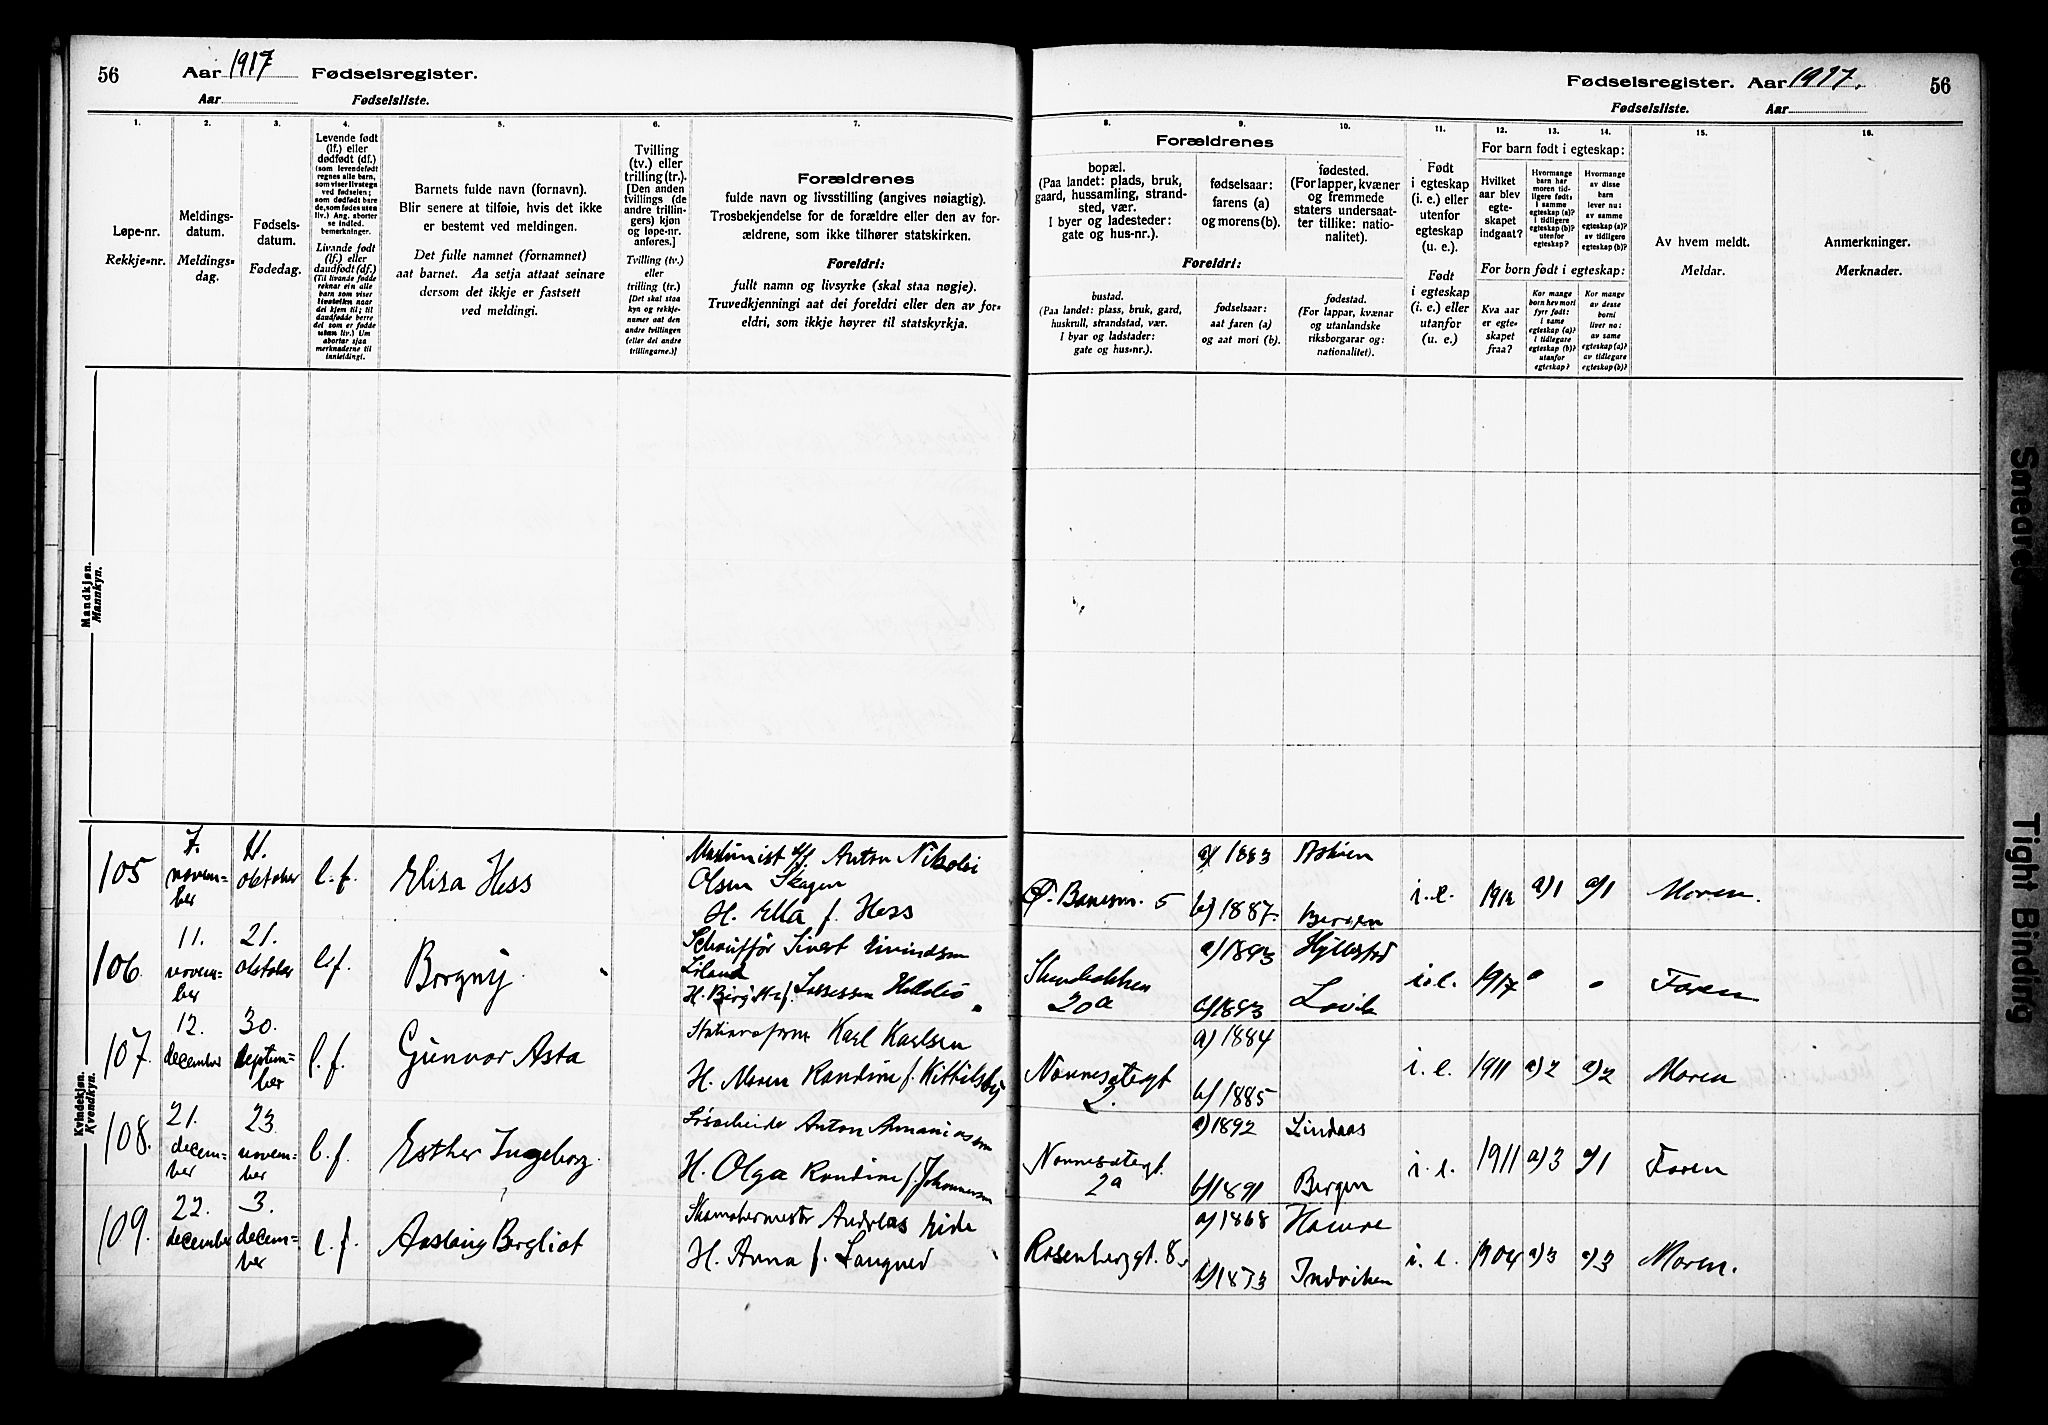 56 Aar 1917 Fødselsregister.
Aar Fødselsliste.
Fødselsregister. Aar 1917. 56
Fødselsliste. Aar
1. 2. 3. 4. 5. 6. 7.
Løpe-nr.
Rekkje-nr.
Meldings-
datum.
Meldings-
dag.
Fødsels-
datum.
Fødedag.
Levende født
(lf.) eller
dødfødt (df.)
(som levendefødt
regnes alle barn,
som viser livstegn
ved fødselen;
som dødfødt bare
de, som fødes uten
liv.) Ang. aborter
se indled.
bemerkninger.
Livande født
(lf.) eller
daudfødt (df.)
(Til livande fødde
reknar ein alle
barn som viser
livsteikn naar
dei kjem til; til
daudfødde berre
dei som er fødde
utan liv.) Um
abortar sjaa
merknaderne til
innleidingi.
Barnets fulde navn (fornavn).
Blir senere at tilføie, hvis det ikke
er bestemt ved meldingen.
Det fulle namnet (fornamnet)
aat barnet. Aa setja attaat seinare
dersom det ikkje er fastsett
ved meldingi.
Tvilling
(tv.) eller
trilling (tr.).
[Den anden
tvillings (de
andre trillin-
gers) kjøn
og løpe-nr.
anføres.]
Tvilling (tv.)
eller
trilling (tr.)
[Det skal staa
kyn og rekkje-
numer aat den
andre tvillingen
(eller dei andre
trillingarne.)]
Forældrenes
fulde navn og livsstilling (angives nøiagtig).
Trosbekjendelse for de forældre eller den av for-
ældrene, som ikke tilhører statskirken.
Foreldri:
fullt namn og livsyrke (skal staa nøgje).
Truvedkjenningi aat dei foreldri eller den av for-
eldri, som ikkje høyrer til statskyrkja.
8. 9. 10. 11. 12. 13. 14. 15. 16.
Forældrenes
bopæl.
(Paa landet: plads, bruk,
gaard, hussamling, strand-
sted, vær.
I byer og ladesteder:
gate og hus-nr.).
fødselsaar:
farens (a)
og morens (b).
fødested.
(For lapper, kvæner
og fremmede
staters undersaat-
ter tillike: natio-
nalitet).
Foreldri:
bustad.
(Paa landet: plass, bruk, gard,
huskrull, strandstad, vær.
I byar og ladstader:
gate og hus-nr.).
fødselsaar:
aat faren (a)
og aat mori (b).
fødestad.
(For lappar, kvænar
og utanlandske
riksborgarar og:
nationalitet).
Født
i egteskap
(i. e.) eller
utenfor
egteskap
(u. e.).
Født
i egteskap
(i. e.) eller
utanfor
(u. e.)
For barn født i egteskap:
Hvilket
aar blev
egte-
skapet
indgaat?
Hvormange
barn har
moren tid-
ligere født:
i samme
egteskap (a)?
i tidligere
egteskap (b)?
utenfor
egteskap?
Hvormange
av disse
barn
lever nu:
av samme
egteskap (a)?
av tidligere
egteskap (b)?
For born født i egteskap:
Kva aar
er egte-
skapet
fraa?
Kor mange
born hev mori
fyrr født:
i same
egteskap (a)?
i tidlegare
egteskap (b)?
utanfor
egteskap?
Kor mange
av desse
borni
liver no:
av same
egteskap (a)?
av tidlegare
egteskap (b)?
Av hvem meldt.
Meldar.
Anmerkninger.
Merknader.
Mandkjøn.
Mannkyn.
Kvindekjøn.
Kvendkyn.
105 7. novem=ber 11. oktober l.f. Elisa Hess
Maskinist Anton Nikolai
Olsen Skagen
H. Ella f. Hess
5 a) 1883 Askøen
b) 1887. Bergen
i.e. 1912 a)1 a)1 Moren.
106. 11. novem=ber 21. oktober l.f. Borgny
Schauffør Sivert Eivindsen
20a a) 1893 Hyllestad
b) 1893 Lavik
i.e. 1917 Faren
107. 12. december 30. septem=ber l.f. Gunvor Asta
Karl Karlsen
H. Maren Randine f. Kittilsby
Nonnesætergt
2. a) 1884
b) 1885
i. e. 1911 a)2 a)2 Moren
108. 21. decem=ber 23. novem=ber l.f. Esther Ingeborg
Løsarbeider Anton Ananiassen
H. Olga Randine f. Johannesen
Nonnesætergt.
2a a) 1892 Lindaas
b) 1891 Bergen
i. e. 1911 a)3 a)1 Faren
109. 22. december 3. decem=ber l.f. Aaslaug Bergliot
Skomakermester Andreas Eide
H. Anna f. Langved
Rosenberggt. 8. a) 1868 Hamre
b) 1873 Indviken
i. e. 1904 a)3 a)3 Moren.
Smeared
Tight Binding